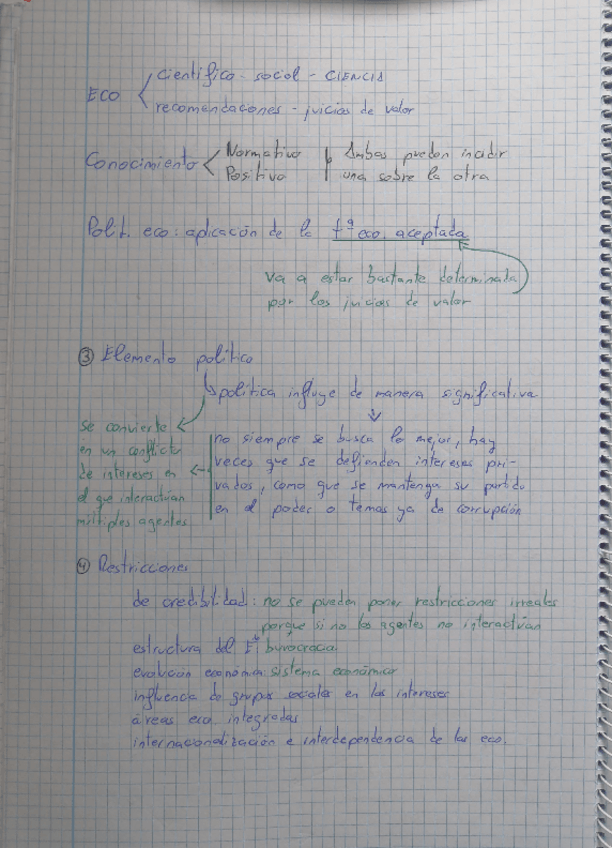 científico - social - CIENCIA
ECO
recomendaciones - juicios de valor
Conocimiento
Normativo
Positivo
Ambas pueden incidir
una sobre la otra
Polít. eco: aplicación de la tª eco. aceptada
va a estar bastante determinada
por los juicios de valor
③ Elemento político
política influye de manera significativa
se convierte
en un conflicto
de intereses en
el que interactúan
múltiples agentes
no siempre se busca lo mejor, hay
veces que se defienden intereses pri-
vados, como que se mantenga su partido
en el poder o temas ya de corrupción
④ Restricciones
de credibilidad: no se pueden poner restricciones irreales
porque si no los agentes no interactúan
estructura del Eº burocracia
evolución económica: sistema económico
influencia de grupos sociales en los intereses
áreas eco. integradas
internacionalización e interdependencia de las eco.